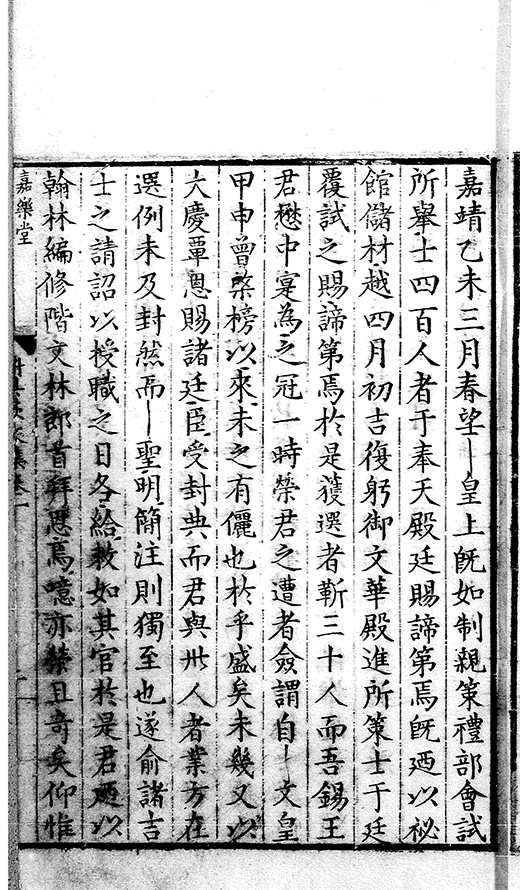 嘉靖乙未三月春望丨皇上旣如制親策禮部會試
所舉士四百人者于奉天殿廷賜諦第焉旣廼以祕
館儲材越四月初吉復躬御文華殿進所策士于廷
覆試之賜諦第焉於是獲選者靳三十人而吾錫王
君懋中寔為之冠一時榮君之遭者僉謂自丨文皇
甲申曾棨榜以來未之有儷也於乎盛矣未幾又以
大慶覃恩賜諸廷臣受封典而君與卅人者業方在
選例未及封然而丨聖明簡注則獨至也遂俞諸吉
士之請詔以授職之日各給敕如其官於是君廼以
翰林編修階文林郎首拜恩焉噫亦榮且奇矣仰惟
嘉樂堂
集卷一